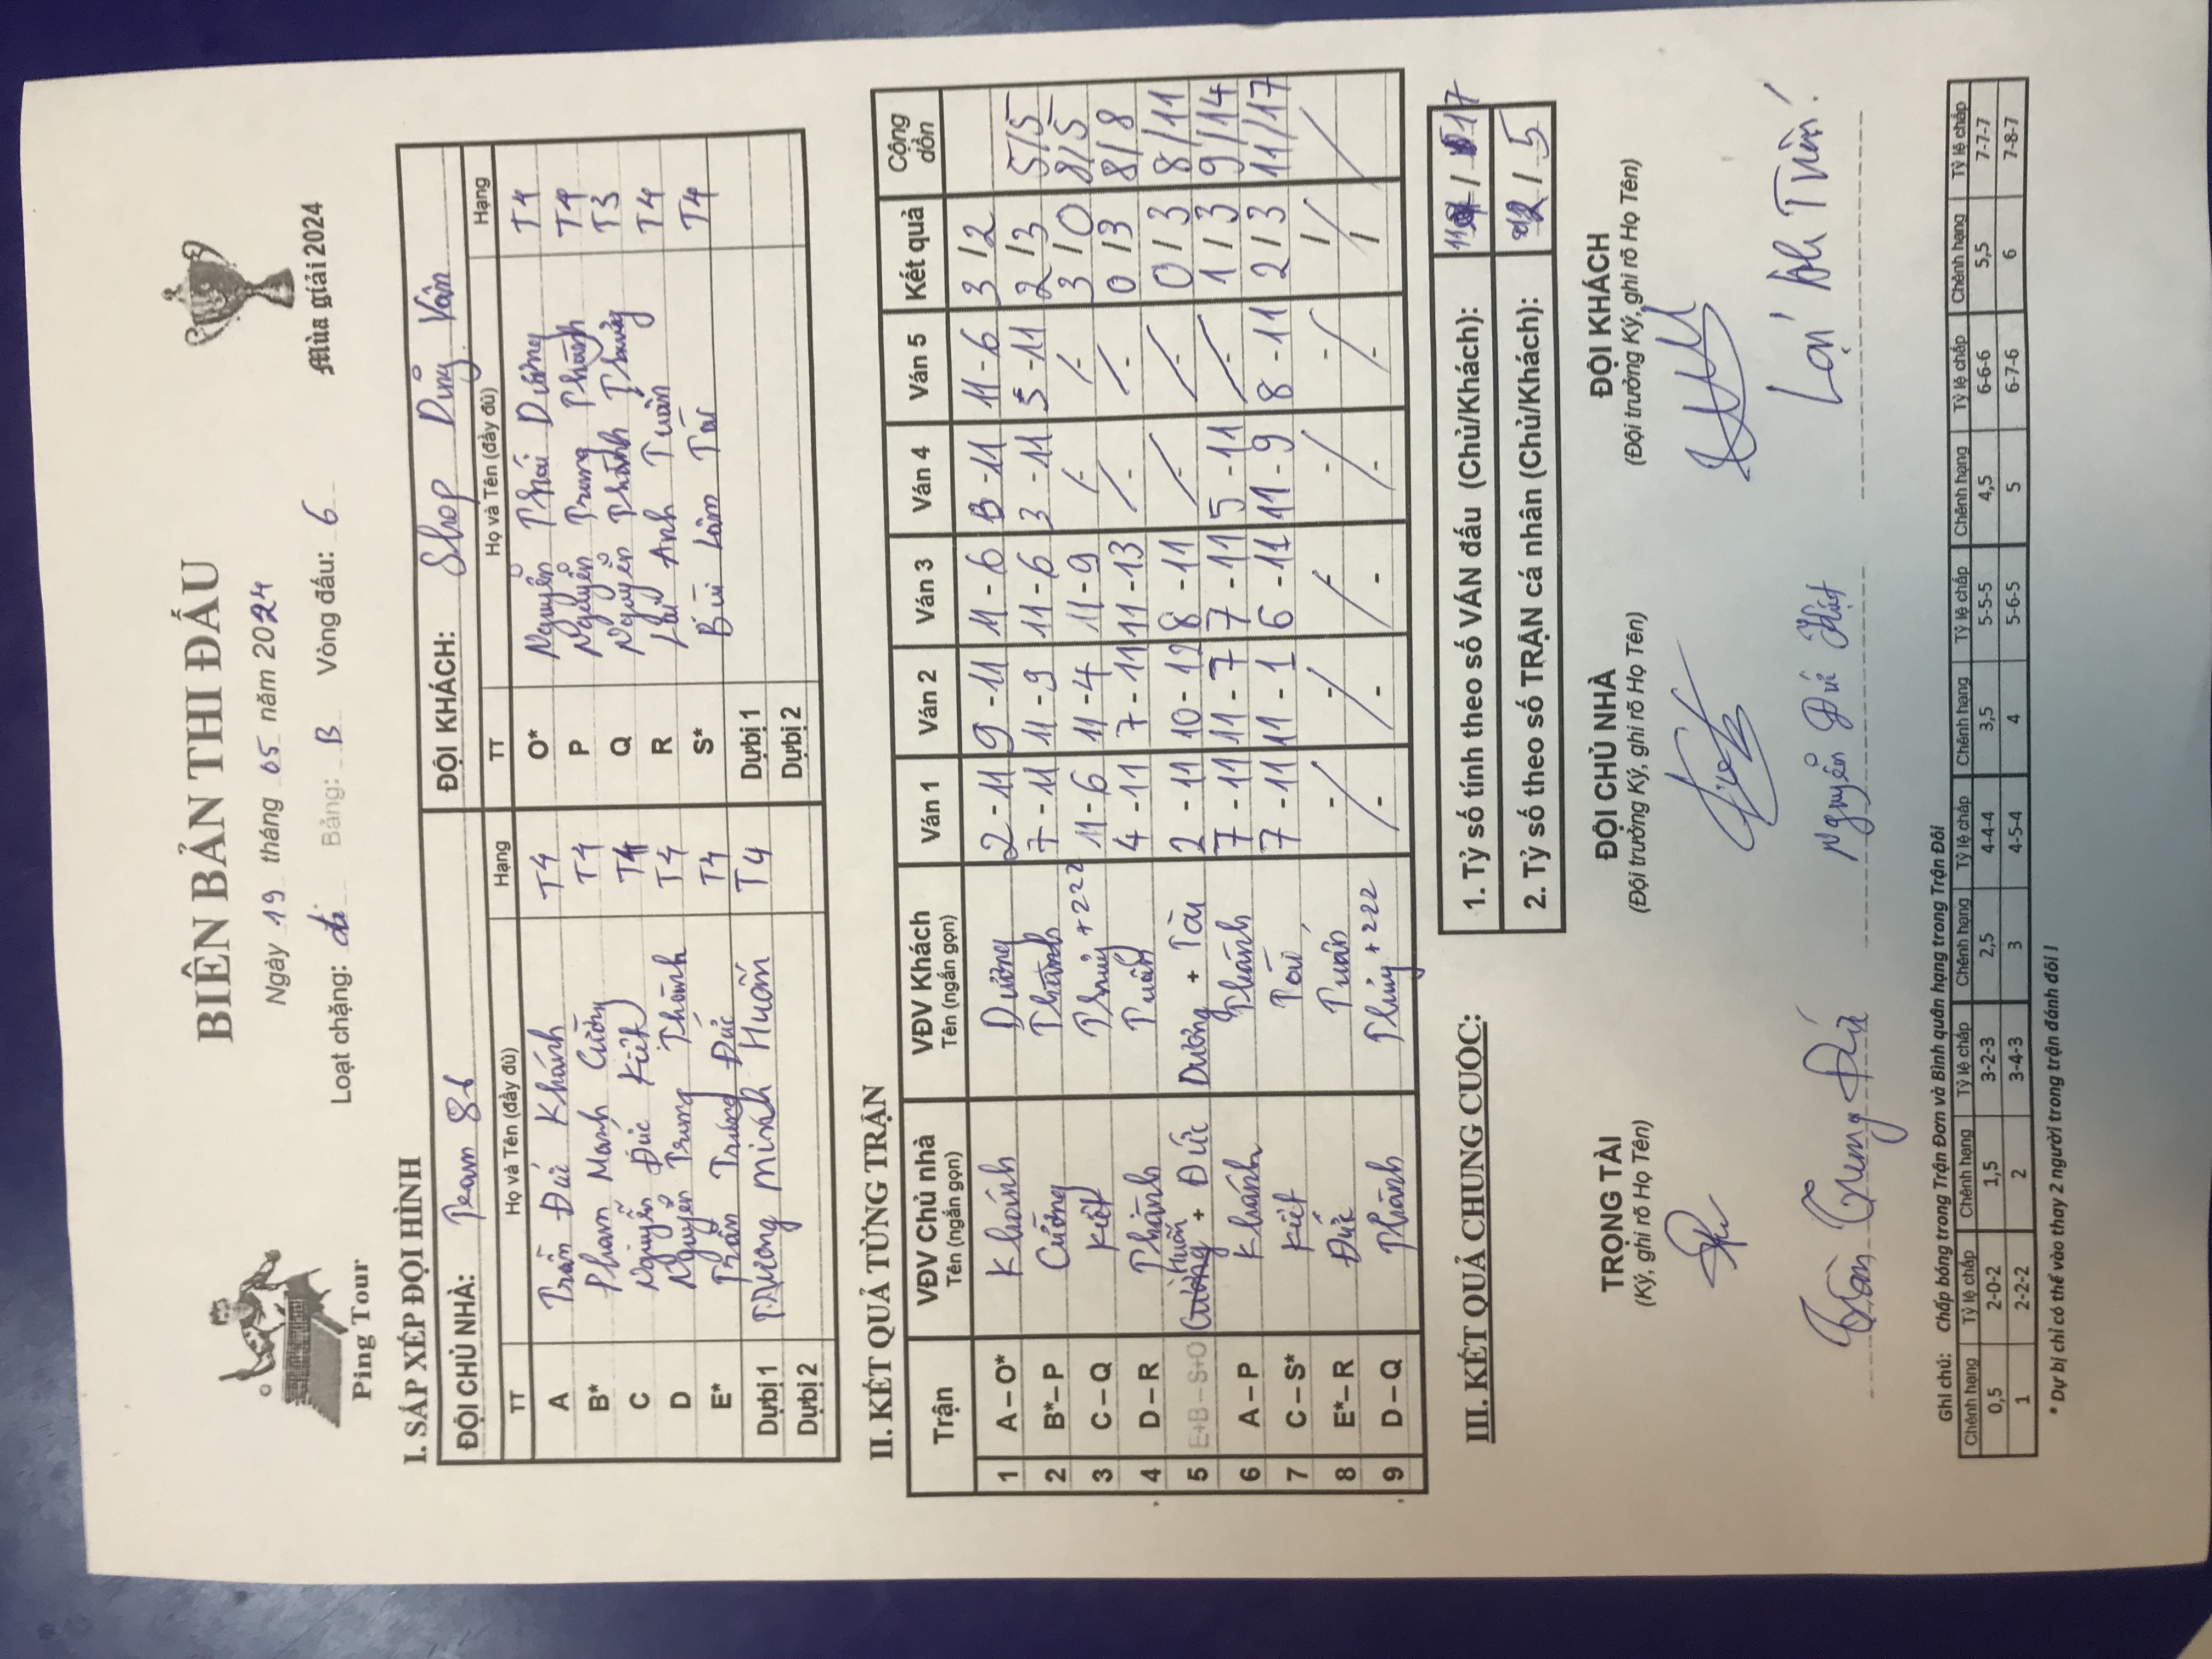 BIÊN BẢN THI ĐẤU
Ngày 19 tháng 05 năm 2024
Loạt chặng: đi Bảng: B Vòng đấu: 6
Ping Tour
Mùa giải 2024
I. SẮP XẾP ĐỘI HÌNH
ĐỘI CHỦ NHÀ: Team 86 ĐỘI KHÁCH: Shop Dũng Vân
TT Họ và Tên (đầy đủ) Hạng TT Họ và Tên (đầy đủ) Hạng
A Trần Đức Khánh T4 O* Nguyễn Thái Dương T4
B* Phạm Mạnh Cường T4 P Nguyễn Trung Thành T4
C Nguyễn Đức Kiệt T4 Q Nguyễn Thành Trung T3
D Nguyễn Trung Thành T4 R Lại Anh Tuấn T4
E* Trần Trung Đức T4 S* Bùi Lâm Tài T4
Dự bị 1 Trương Minh Huấn T4 Dự bị 1
Dự bị 2 Dự bị 2
II. KẾT QUẢ TỪNG TRẬN
Trận VĐV Chủ nhà Tên (ngắn gọn) VĐV Khách Tên (ngắn gọn) Ván 1 Ván 2 Ván 3 Ván 4 Ván 5 Kết quả Cộng dồn
1 A – O* Khánh Dương 2 - 11 9 - 11 11 - 6 13 - 11 11 - 6 3 / 2
2 B* – P Cường Thành 7 - 11 11 - 9 11 - 6 3 - 11 5 - 11 2 / 3 5/5
3 C – Q Kiệt +222 11 - 6 11 - 4 11 - 9 3 / 0 8/5
4 D – R Thành Tuấn 4 - 11 7 - 11 11 - 13 0 / 3 8/8
5 E+B – S+O Huấn + Đức Dương + Tài 2 - 11 10 - 12 8 - 11 0 / 3 8/11
6 A – P Khánh Thành 7 - 11 11 - 7 7 - 11 5 - 11 1 / 3 9/14
7 C – S* Kiệt Tài 7 - 11 11 - 1 6 - 11 11 - 9 8 - 11 2 / 3 11/17
8 E* – R Đức Tuấn
9 D – Q Thành +222
III. KẾT QUẢ CHUNG CUỘC:
1. Tỷ số tính theo số VÁN đấu (Chủ/Khách): 11 / 17
2. Tỷ số theo số TRẬN cá nhân (Chủ/Khách): 2 / 5
TRỌNG TÀI
(Ký, ghi rõ Họ Tên)
ĐỘI CHỦ NHÀ
(Đội trưởng Ký, ghi rõ Họ Tên)
ĐỘI KHÁCH
(Đội trưởng Ký, ghi rõ Họ Tên)
Trần Trung Đức
Nguyễn Đức Kiệt
Lại Anh Tuấn
Ghi chú: Chấp bóng trong Trận Đơn và Bình quân hạng trong Trận Đôi
Chênh hạng Tỷ lệ chấp Chênh hạng Tỷ lệ chấp Chênh hạng Tỷ lệ chấp Chênh hạng Tỷ lệ chấp Chênh hạng Tỷ lệ chấp Chênh hạng Tỷ lệ chấp
0,5 2-0-2 1,5 3-2-3 2,5 4-4-4 3,5 5-5-5 4,5 6-6-6 5,5 7-7-7
1 2-2-2 2 3-4-3 3 4-5-4 4 5-6-5 5 6-7-6 6 7-8-7
* Dự bị chỉ có thể vào thay 2 người trong trận đánh đôi !